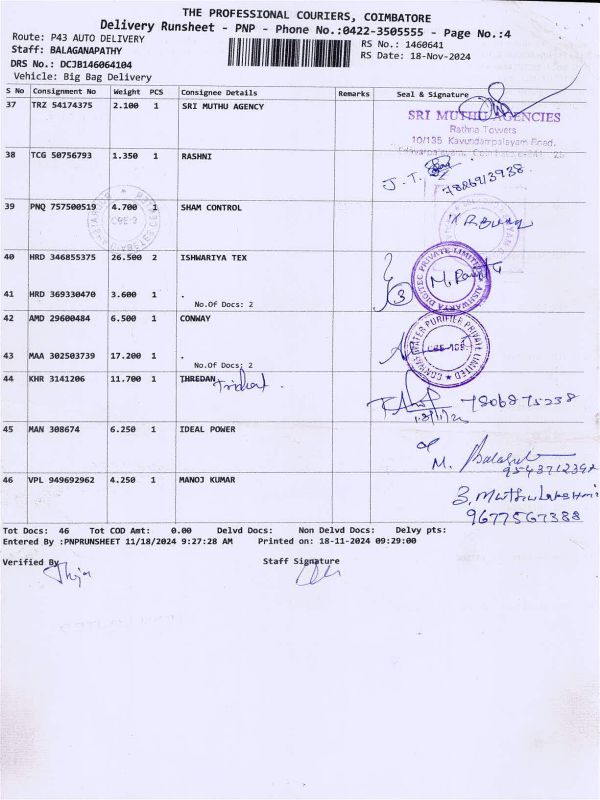 THE PROFESSIONAL COURIERS, COIMBATORE
Delivery Runsheet - PNP - Phone No.:0422-3505555 - Page No.:4
Route: P43 AUTO DELIVERY
RS No.: 1460641
Staff: BALAGANAPATHY
RS Date: 18-Nov-2024
DRS No.: DCJB146064104
Vehicle: Big Bag Delivery
S No Consignment No Weight PCS Consignee Details Remarks Seal & Signature
37 TRZ 54174375 2.100 1 SRI MUTHU AGENCY
SRI MUTHU AGENCIES
Rathna Towers
10/135 Kavundampalayam Road,
38 TCG 50756793 1.350 1 RASHNI
J.T.
7886913938
39 PNQ 757500519 4.700 1 SHAM CONTROL
CBE-3
40 HRD 346855375 26.500 2 ISHWARIYA TEX
AISHWARYA DIGITEC PRIVATE LIMITED
3
41 HRD 369330470 3.600 1 .
No.Of Docs: 2
42 AMD 29600484 6.500 1 CONWAY
CONWAY WATER PURIFIER PRIVATE LIMITED
43 MAA 302503739 17.200 1 .
No.Of Docs: 2
44 KHR 3141206 11.700 1 THREDAN
7806875238
45 MAN 308674 6.250 1 IDEAL POWER
M.
9543712392
46 VPL 949692962 4.250 1 MANOJ KUMAR
9677567388
Tot Docs: 46 Tot COD Amt: 0.00 Delvd Docs: Non Delvd Docs: Delvy pts:
Entered By :PNPRUNSHEET 11/18/2024 9:27:28 AM Printed on: 18-11-2024 09:29:00
Verified By
Staff Signature